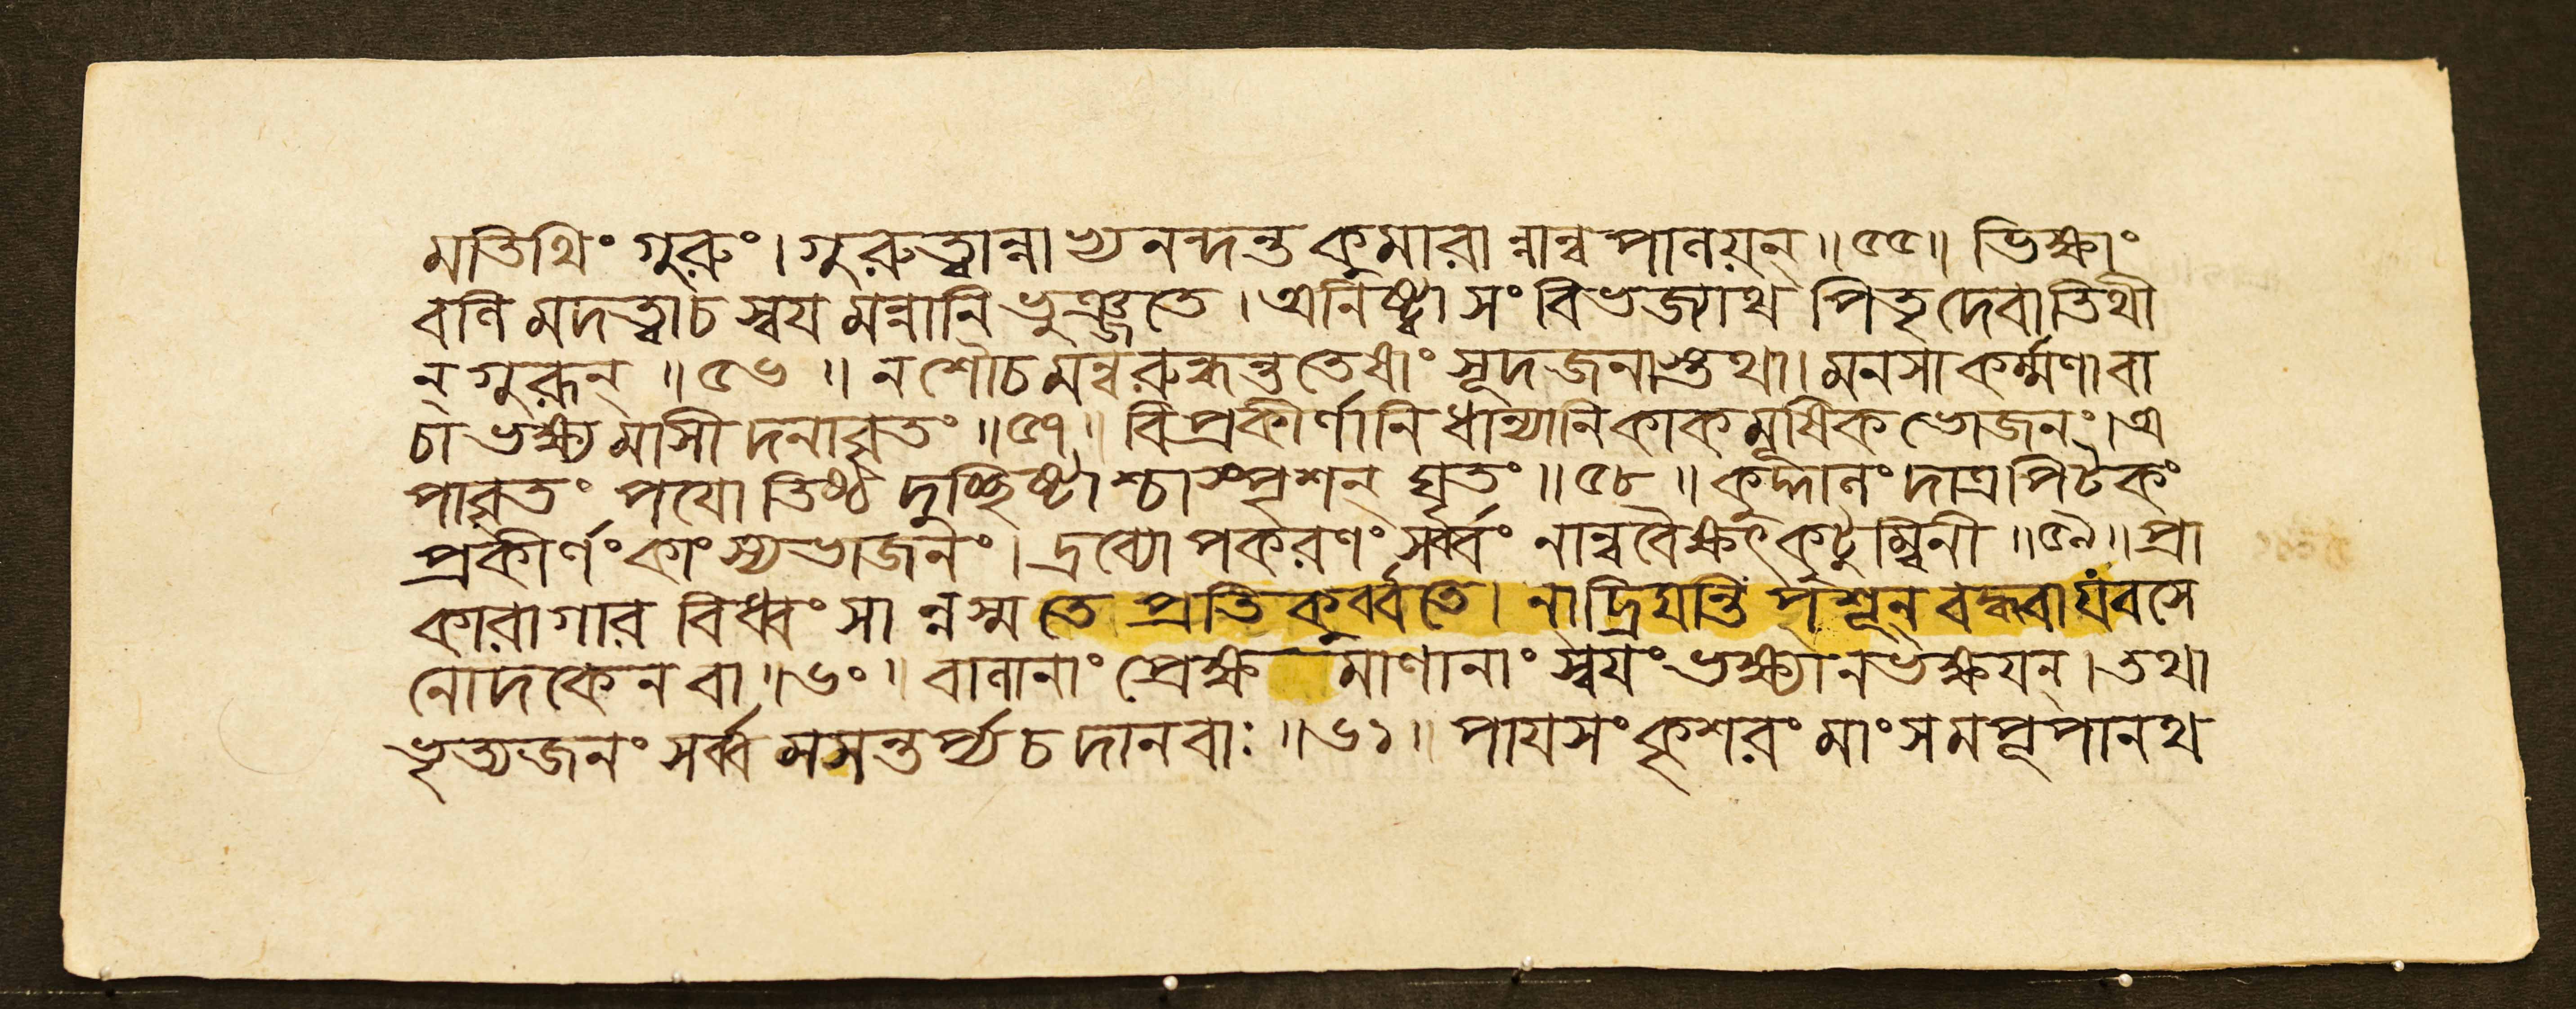 মতিথিং গুরুং। গুরুত্বান্নাভ্যনন্দন্ত কুমারান্নান্বপানয়ন্॥৫৫॥ ভিক্ষাং
বলিমদত্বাচ স্বয়মন্নানি ভুঞ্জতে। অনিষ্ট্বা সংবিভজ্যাথ পিতৃদেবাতিথী
ন্ গুরূন্ ॥৫৬॥ ন শৌচমন্বরুদ্ধন্ত তেষাং সূদজনাস্তথা। মনসা কর্ম্মণা বা
চা ভক্ষ্যমাসীদনাবৃতং ॥৫৭॥ বিপ্রকীর্ণানি ধান্যানি কাকমূষিকভোজনং। অ
পাবৃতং পয়োতিষ্ঠদুচ্ছিষ্টাশ্চাস্পৃশন্ ঘৃতং ॥৫৮॥ কুদ্দানং দাত্রপিটকং
প্রকীর্ণং কাংস্যভাজনং। দ্রব্যোপকরণং সর্ব্বং নান্ববৈক্ষৎ কটুম্বিনী ॥৫৯॥ প্রা
কারাগারবিধ্বংসান্নস্ম তে প্রতিকুর্ব্বতে। নাদ্রিয়ন্তি পশূন্ বদ্ধবা যবসে
নোদকেন বা ॥৬০॥ বালানাং প্রেক্ষমাণানাং স্বয়ং ভক্ষ্যানভক্ষয়ন্। তথা
ভৃত্যজনং সর্ব্বমসন্তর্প্য চ দানবাঃ ॥৬১॥ পায়সং কৃশরং মাংসমপূপানথ